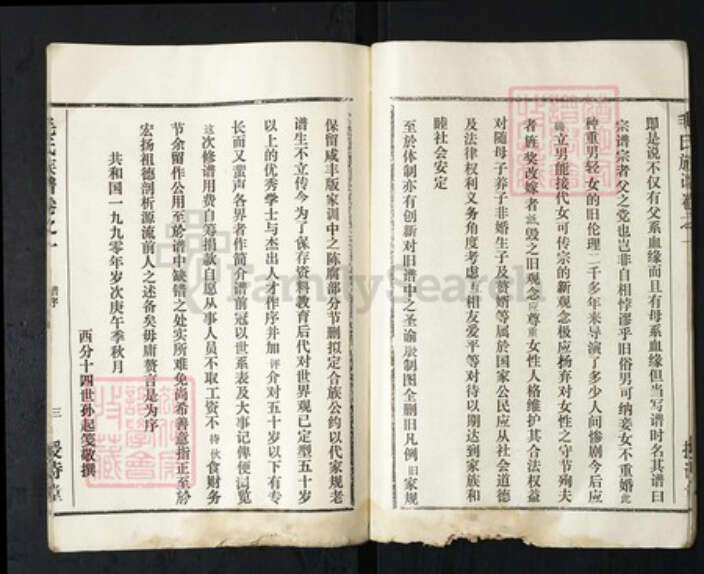 即是说不仅有父系血缘而且有母系血缘但当写谱时名其谱曰
宗谱宗者父之党也岂非自相悖谬乎旧俗男可纳妾女不重婚此
种重男轻女的旧伦理二千多年来导演了多少人间惨剧今后应
立男能接代女可传宗的新观念极应扬弃对女性之守节殉夫
者旌奖改嫁者诋毁之旧观念应尊重女性人格维护其合法权益
对随母子养子非婚生子及赘婿等属於国家公民应从社会道德
及法律权利义务角度考虑互相友爱平等对待以期达到家族和
睦社会安定
至於体制亦有创新对旧谱中之圣谕服制图全删旧凡例旧家规
保留咸丰版家训中之陈腐部分节删拟定合族公约以代家规老
谱生不立传今为了保存资料教育后代对世界观已定型五十岁
以上的优秀学士与杰出人才作序并加评介对五十岁以下有专
长而又蜚声各界者作简介谱前冠以世系表及大事记俾便阅览
这次修谱用费自筹捐款自愿从事人员不取工资不待伙食财务
节余留作公用至於谱中缺错之处实所难免尚希善意指正至於
宏扬祖德剖析源流前人之述备矣毋庸赘言是为序
共和国一九九零年岁次庚午季秋月
西分十四世孙起笺敬撰
毛氏族谱卷之一
谱序
三
FamilySearch